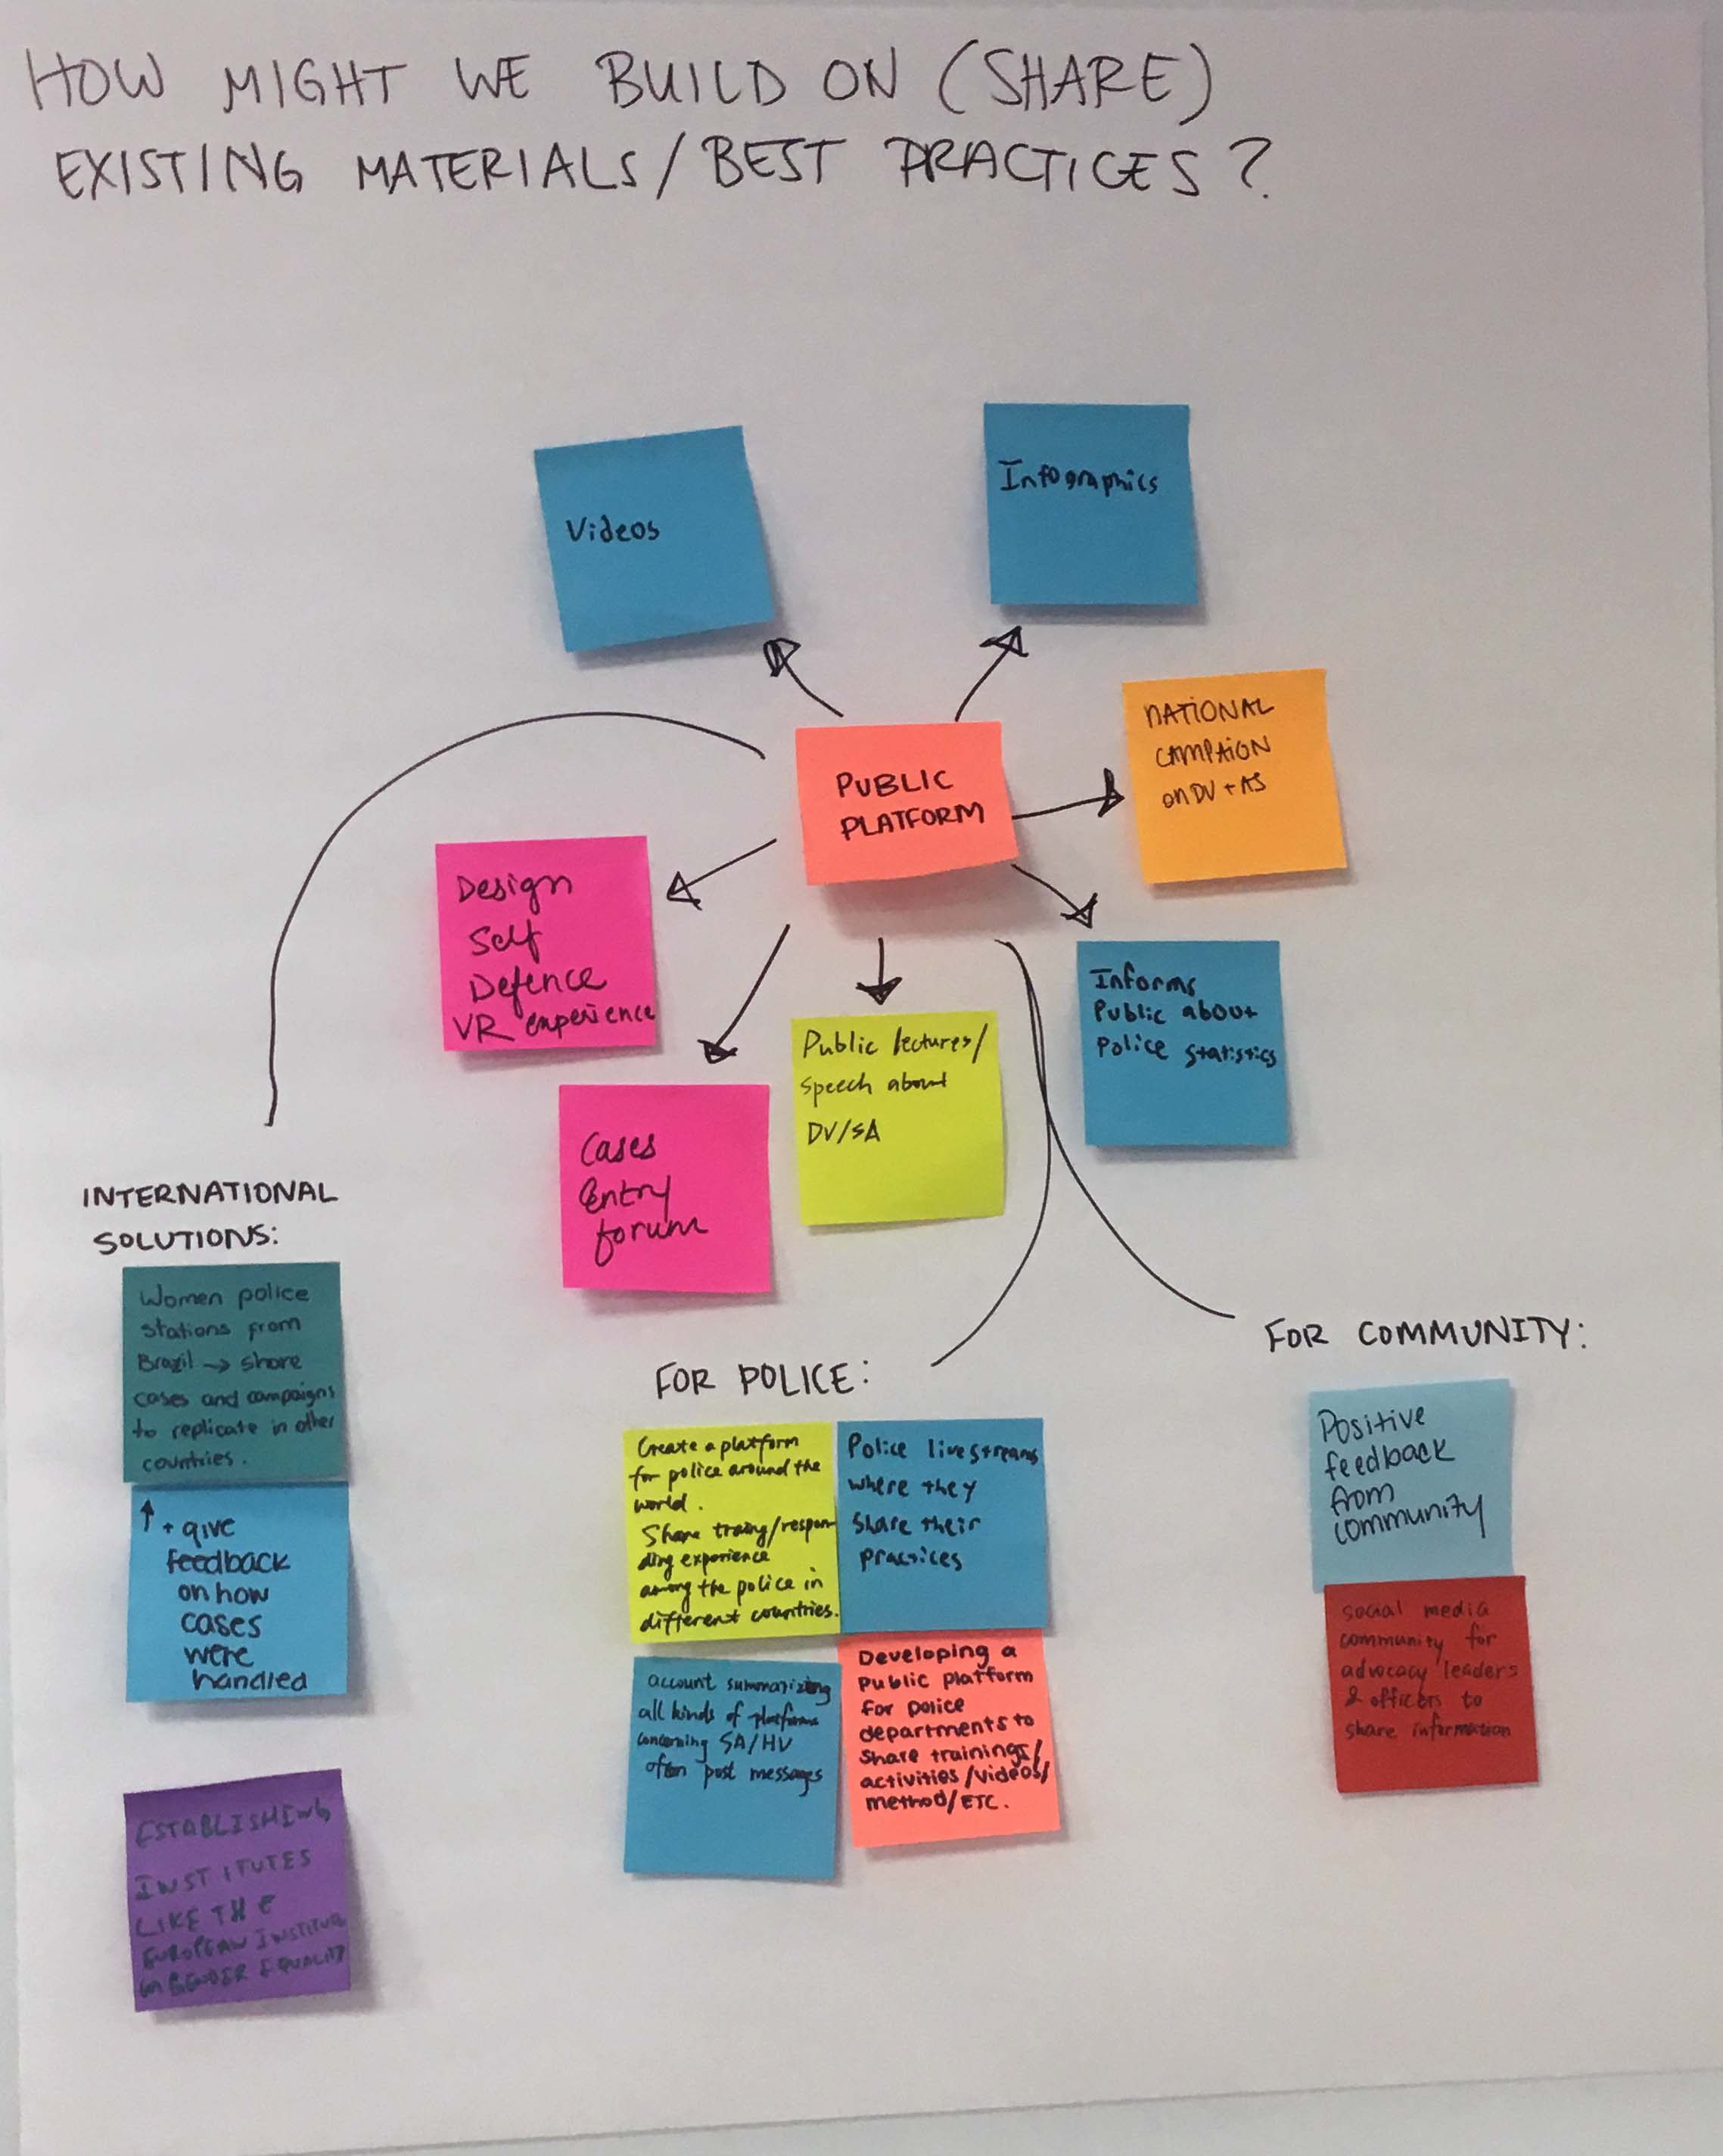 HOW MIGHT WE BUILD ON (SHARE)
EXISTING MATERIALS/BEST PRACTICES?
Videos
Infographics
PUBLIC
PLATFORM
NATIONAL
CAMPAIGN
on DV + AS
Design
Self
Defence
VR experience
Cases
Entry
forum
Public lectures/
speech about
DV/SA
Informs
Public about
Police statistics
INTERNATIONAL
SOLUTIONS:
Women police
stations from
Brazil → share
cases and campaigns
to replicate in other
countries.
↑ + give
feedback
on how
cases
were
handled
ESTABLISHING
INSTITUTES
LIKE THE
EUROPEAN INSTITUTE
GENDER EQUALITY
FOR POLICE:
Create a platform
for police around the
world.
Share traing/respon-
ding experience
among the police in
different countries.
Police livestreams
where they
share their
practices
account summarizing
all kinds of platforms
concerning SA/HV
often post messages
Developing a
Public platform
for police
departments to
share trainings/
activities/videos/
method/ETC.
FOR COMMUNITY:
Positive
feedback
from
community
social media
community for
advocacy leaders
& officers to
share information